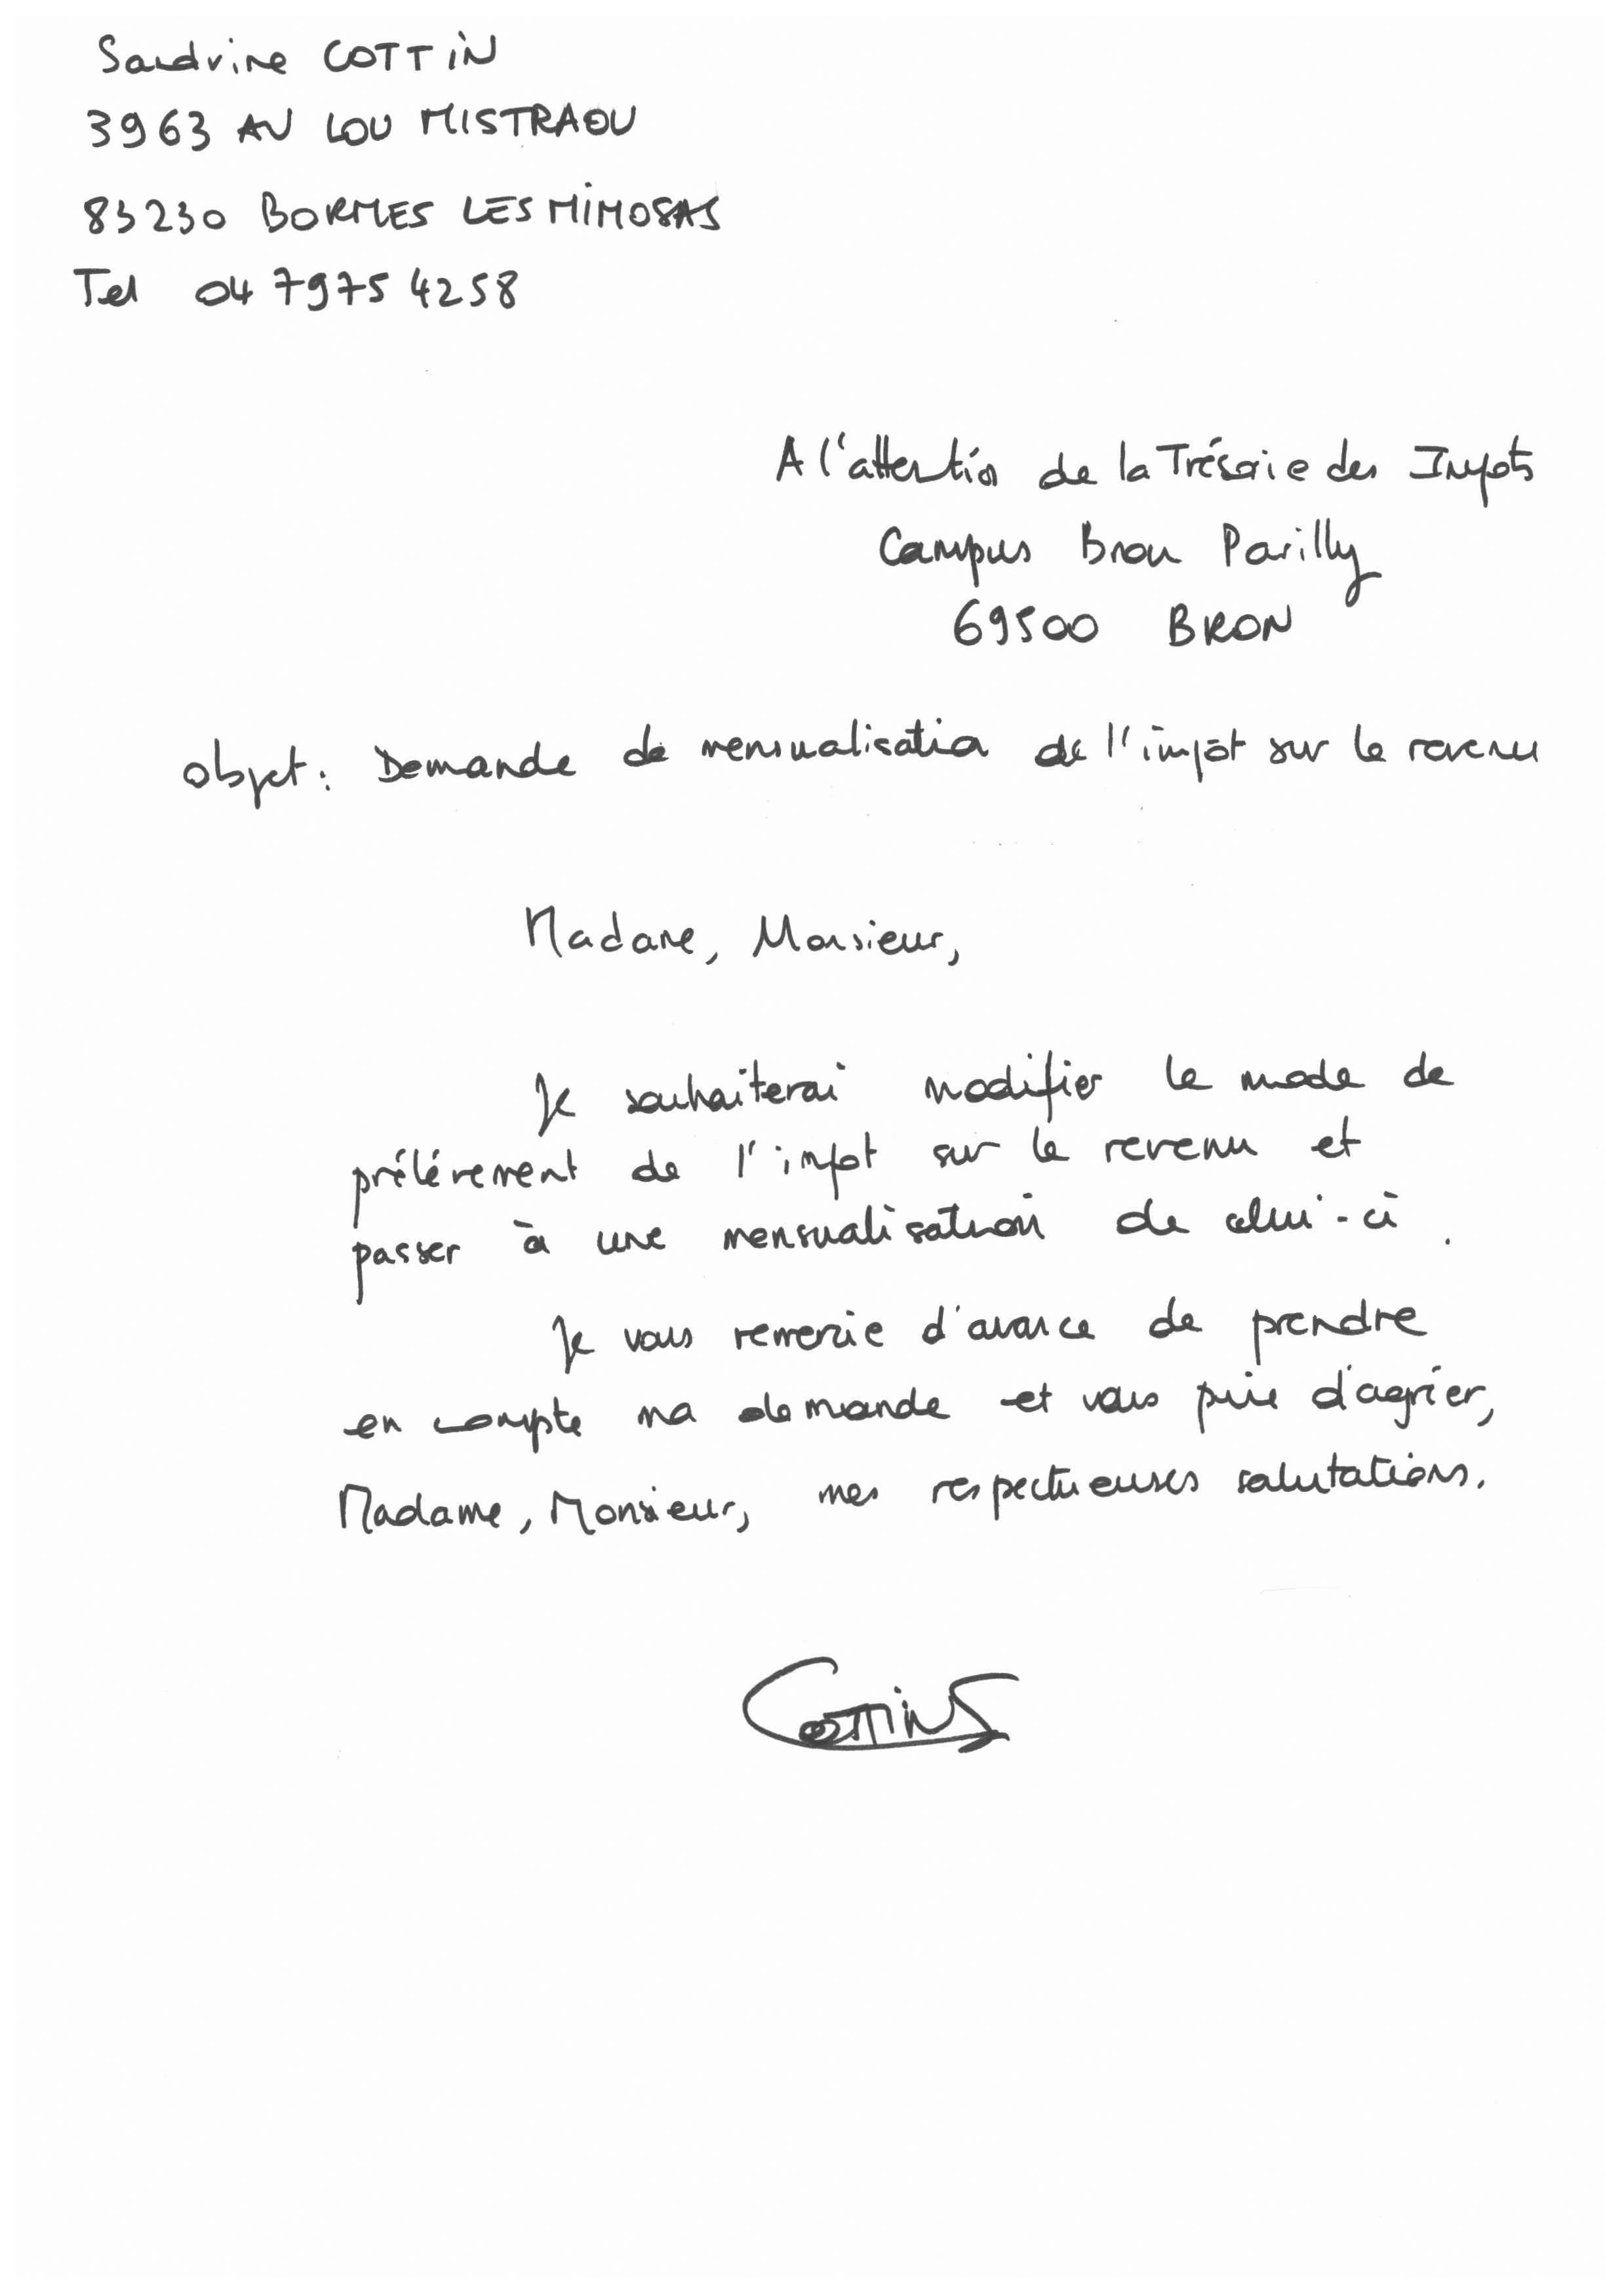 Sandrine COTTIN
3963 AV LOU MISTRAOU
83230 BORMES LES MIMOSAS
Tel 04 79 75 42 58
A l'attention de la Trésorie des Impots
Campus Bron Parilly
69500 BRON
Objet : Demande de mensualisation de l'impôt sur le revenu
Madame, Monsieur,
Je souhaiterai modifier le mode de
prélévement de l'impot sur le revenu et
passer à une mensualisation de celui-ci.
Je vous remercie d'avance de prendre
en compte ma demande et vous prie d'agréer,
Madame, Monsieur, mes respectueuses salutations.
Cottin